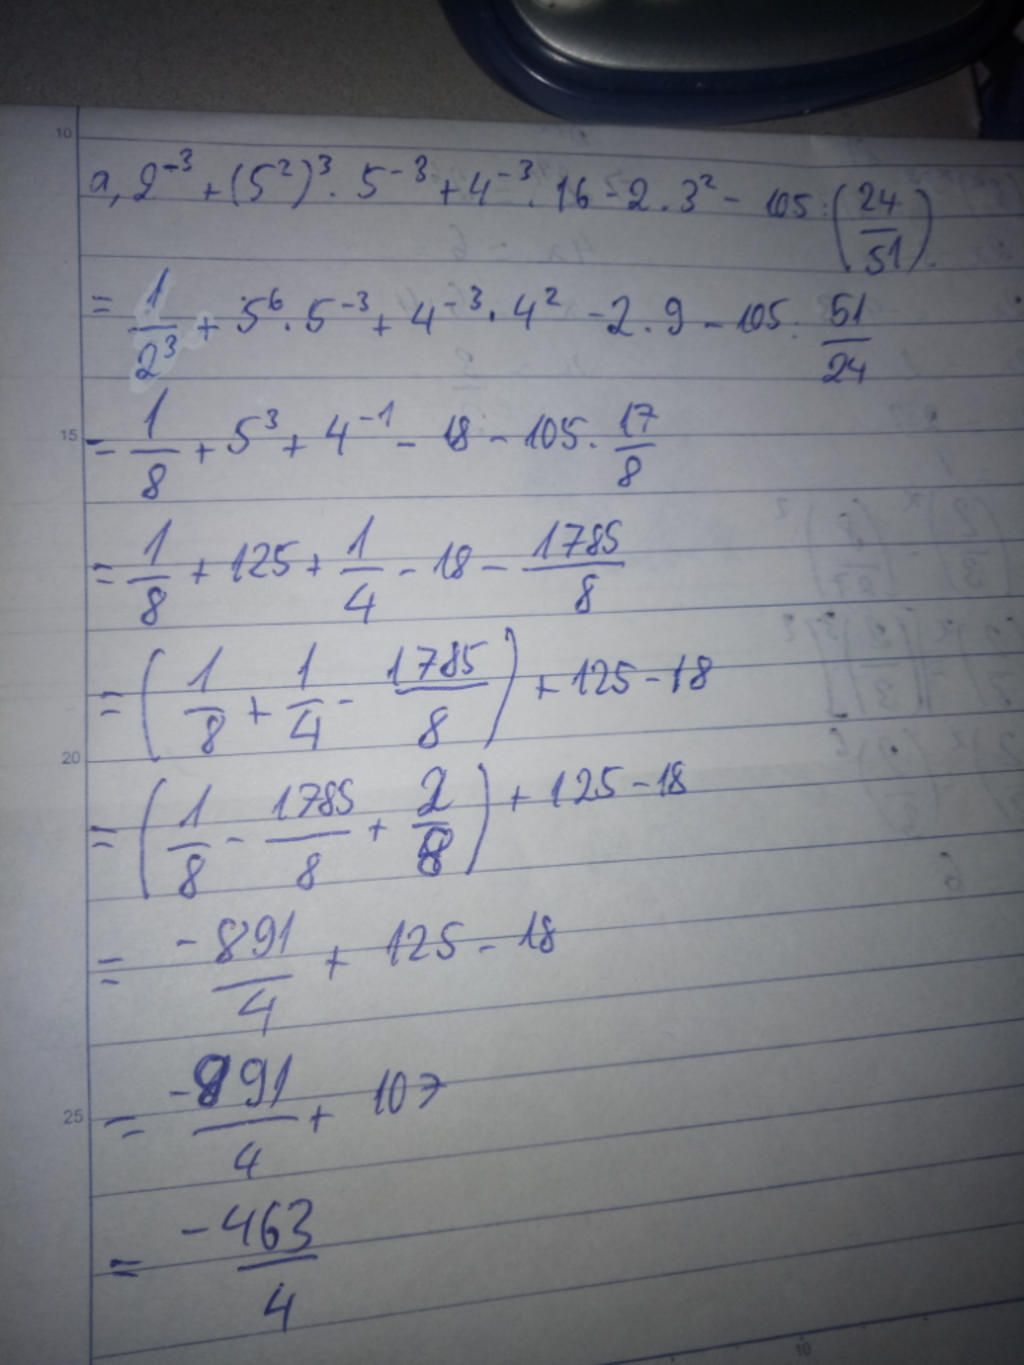 10
a, 2⁻³ + (5²)³ . 5⁻³ + 4⁻³ . 16 - 2 . 3² - 105 : (24/51).
= 1/2³ + 5⁶ . 5⁻³ + 4⁻³ . 4² - 2 . 9 - 105 . 51/24
15
= 1/8 + 5³ + 4⁻¹ - 18 - 105 . 17/8
= 1/8 + 125 + 1/4 - 18 - 1785/8
= (1/8 + 1/4 - 1785/8) + 125 - 18
20
= (1/8 - 1785/8 + 2/8) + 125 - 18
= -891/4 + 125 - 18
25
= -891/4 + 107
= -463/4
10